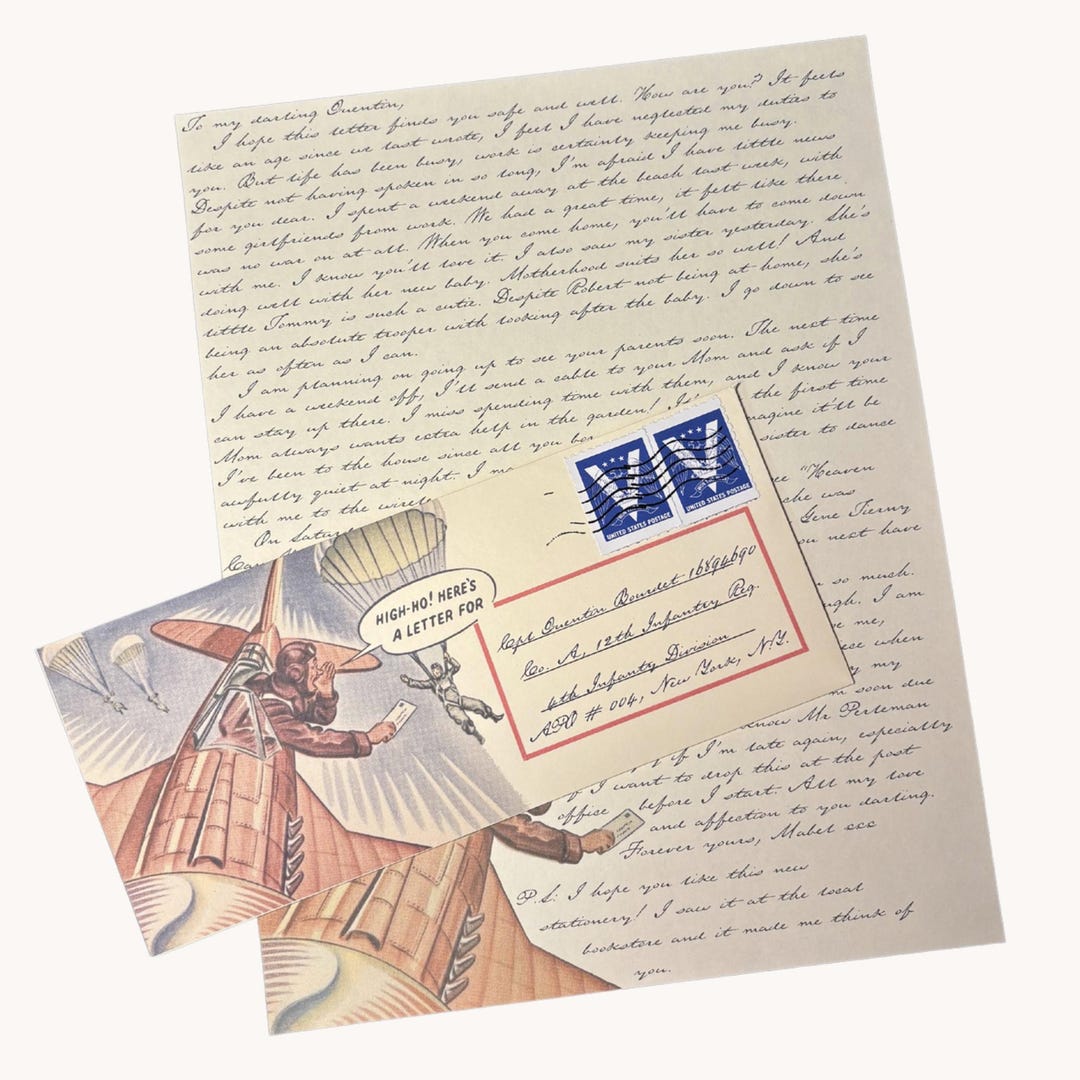 To my darling Quentin,
I hope this letter finds you safe and well. How are you? It feels
like an age since we last wrote, I feel I have neglected my duties to
you. But life has been busy, work is certainly keeping me busy.
Despite not having spoken in so long, I'm afraid I have little news
for you dear. I spent a weekend away at the beach last week, with
some girlfriends from work. We had a great time, it felt like there
was no war on at all. When you come home, you'll have to come down
with me. I know you'll love it. I also saw my sister yesterday. She's
doing well with her new baby. Motherhood suits her so well! And
little Tommy is such a cutie. Despite Robert not being at home, she's
being an absolute trooper with looking after the baby. I go down to see
her as often as I can.
I am planning on going up to see your parents soon. The next time
I have a weekend off, I'll send a cable to your Mom and ask if I
can stay up there. I miss spending time with them, and I know your
Mom always wants extra help in the garden! the first time
I've been to the house since all you it'll be
awfully quiet at night. I sister to dance
with me to the
On "Heaven
she was
Gene Tierny
next have
so much.
I am
me,
when
my
soon due
know Mr Perteman
if I'm late again, especially
I want to drop this at the post
office before I start. All my love
and affection to you darling.
Forever yours, Mabel xxx
P.S: I hope you like this new
stationery! I saw it at the local
bookstore and it made me think of
you.
HIGH-HO! HERE'S
A LETTER FOR
UNITED STATES POSTAGE
UNITED STATES POSTAGE
Cpt Quentin Bourdet 16894690
Co. A, 12th Infantry Reg.
4th Infantry Division
APO # 004, New York, N.Y.